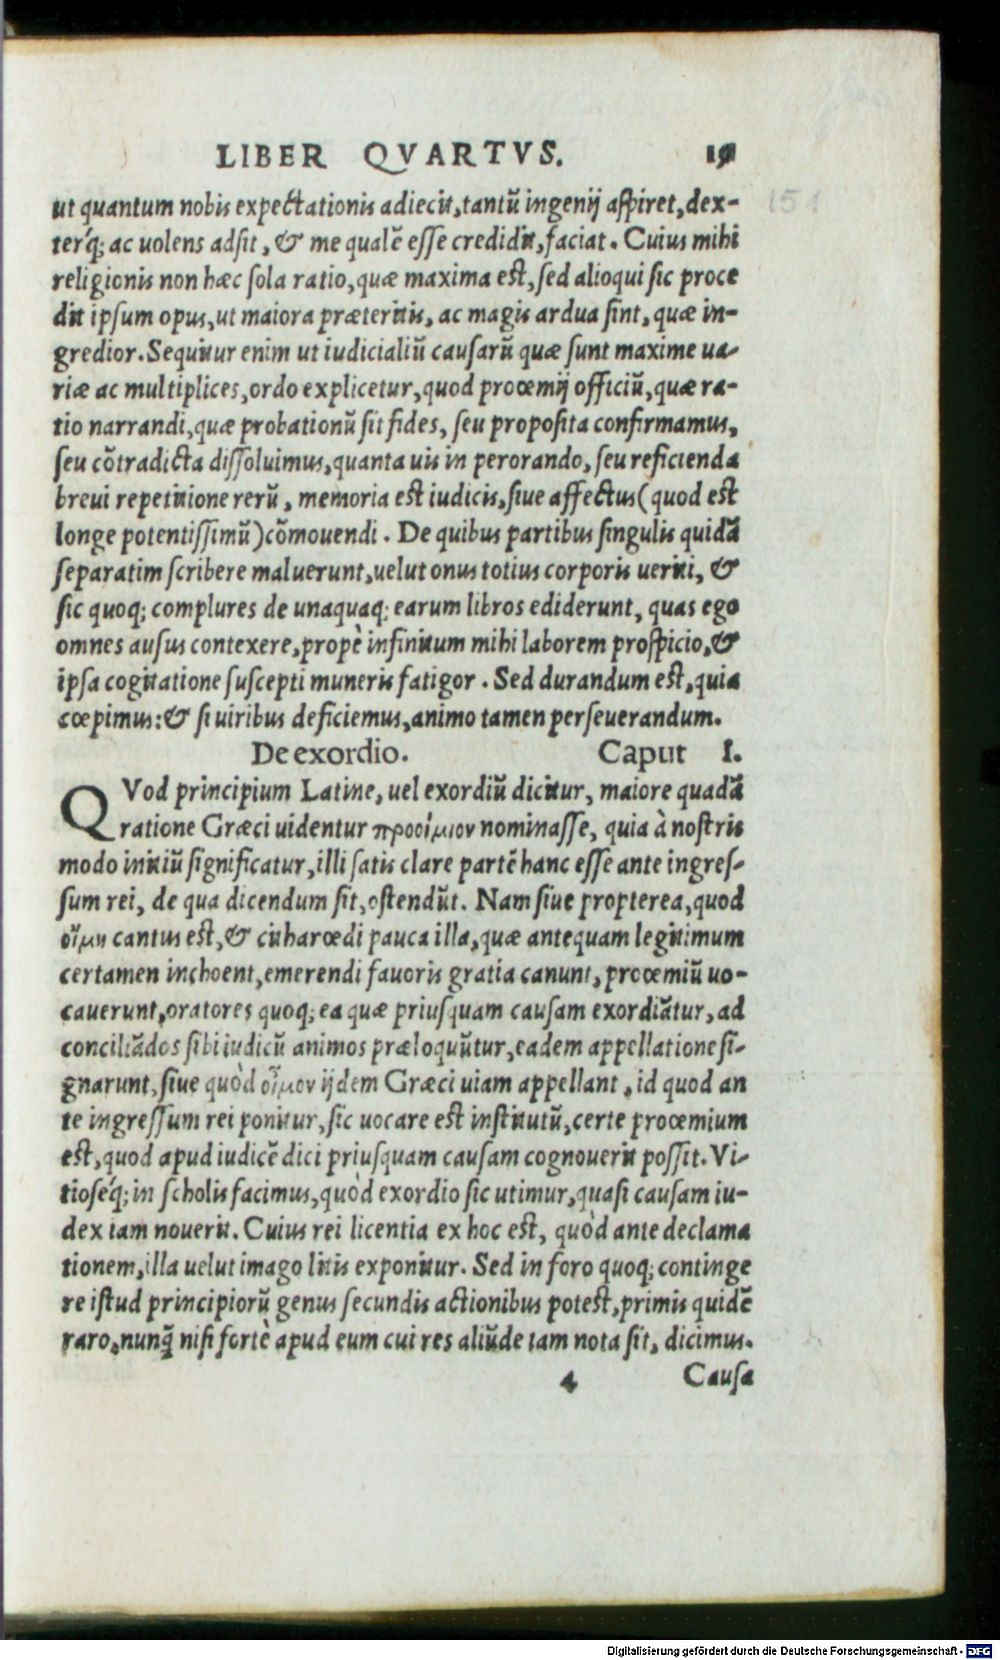 LIBER QVARTVS. 19
151
ut quantum nobis expectationis adiecit, tantũ ingenij aspiret, dex-
terq́; ac uolens adsit, & me qualẽ esse credidit, faciat. Cuius mihi
religionis non hæc sola ratio, quæ maxima est, sed alioqui sic proce
dit ipsum opus, ut maiora præteritis, ac magis ardua sint, quæ in-
gredior. Sequitur enim ut iudicialiũ causarũ quæ sunt maxime ua-
riæ ac multiplices, ordo explicetur, quod proœmij officiũ, quæ ra-
tio narrandi, quæ probationũ sit fides, seu proposita confirmamus,
seu cõtradicta dissoluimus, quanta uis in perorando, seu reficienda
breui repetitione rerũ, memoria est iudicis, siue affectus (quod est
longe potentissimũ) cõmouendi. De quibus partibus singulis quidã
separatim scribere maluerunt, uelut onus totius corporis ueriti, &
sic quoq; complures de unaquaq; earum libros ediderunt, quas ego
omnes ausus contexere, propè infinitum mihi laborem prospicio, &
ipsa cogitatione suscepti muneris fatigor. Sed durandum est, quia
cœpimus: & si uiribus deficiemus, animo tamen perseuerandum.
De exordio. Caput I.
QVod principium Latine, uel exordiũ dicitur, maiore quadã
ratione Græci uidentur προοίμιον nominasse, quia à nostris
modo initiũ significatur, illi satis clare partẽ hanc esse ante ingres-
sum rei, de qua dicendum sit, ostendũt. Nam siue propterea, quod
οἴμη cantus est, & citharœdi pauca illa, quæ antequam legitimum
certamen inchoent, emerendi fauoris gratia canunt, proœmiũ uo-
cauerunt, oratores quoq; ea quæ priusquam causam exordiãtur, ad
conciliãdos sibi iudicũ animos præloquũtur, eadem appellatione si-
gnarunt, siue quòd οἶμον ijdem Græci uiam appellant, id quod an
te ingressum rei ponitur, sic uocare est institutũ, certe proœmium
est, quod apud iudicẽ dici priusquam causam cognouerit possit. Vi-
tioseq́; in scholis facimus, quòd exordio sic utimur, quasi causam iu-
dex iam nouerit. Cuius rei licentia ex hoc est, quòd ante declama
tionem, illa uelut imago litis exponitur. Sed in foro quoq; continge
re istud principiorũ genus secundis actionibus potest, primis quidẽ
raro, nunq̃ nisi fortè apud eum cui res aliũde iam nota sit, dicimus.
4 Causa
Digitalisierung gefördert durch die Deutsche Forschungsgemeinschaft - DFG